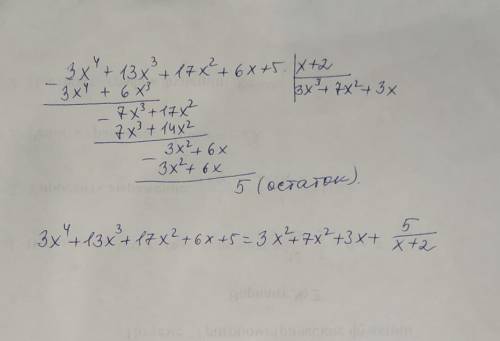 3x⁴ + 13x³ + 17x² + 6x + 5 | x+2
- 3x⁴ + 6x³ | 3x³ + 7x² + 3x
- 7x³ + 17x²
7x³ + 14x²
- 3x² + 6x
3x² + 6x
5 (остаток).
3x⁴ + 13x³ + 17x² + 6x + 5 = 3x² + 7x² + 3x + 5/(x+2)